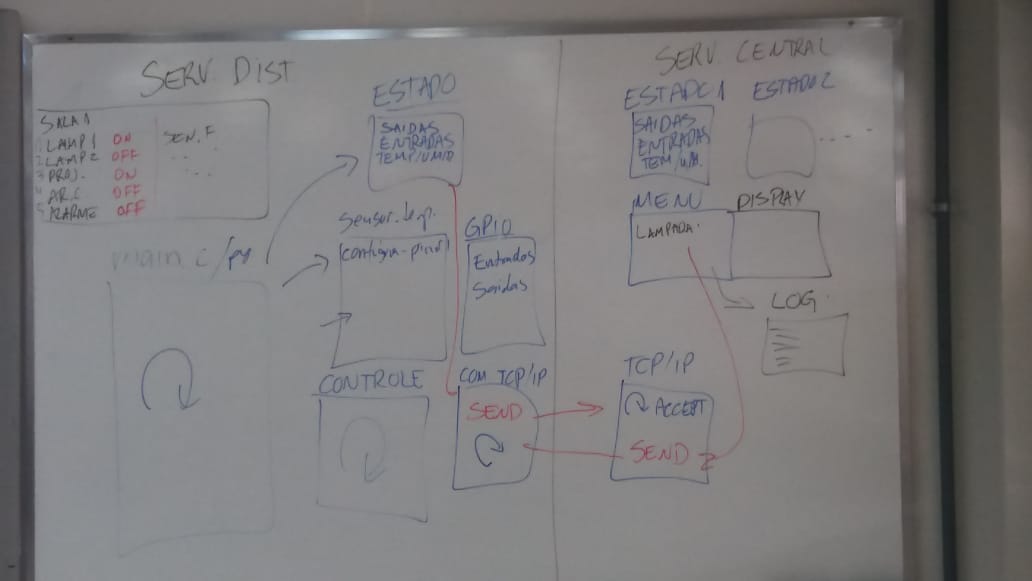 SERV. DIST
SALA 1
1 LAMP 1 ON
2 LAMP 2 OFF
3 PROJ. ON
4 AR.C OFF
5 ALARME OFF
SEN. F
main.c/py
ESTADO
SAIDAS
ENTRADAS
TEMP/UMID
Sensor.
configura-pinos
GPIO
Entradas
Saidas
CONTROLE
COM TCP/IP
SEND
SERV. CENTRAL
ESTADO 1
SAIDAS
ENTRADAS
TEM/UM.
ESTADO 2
MENU
LAMPADA.
DISPLAY
LOG
TCP/IP
ACCEPT
SEND